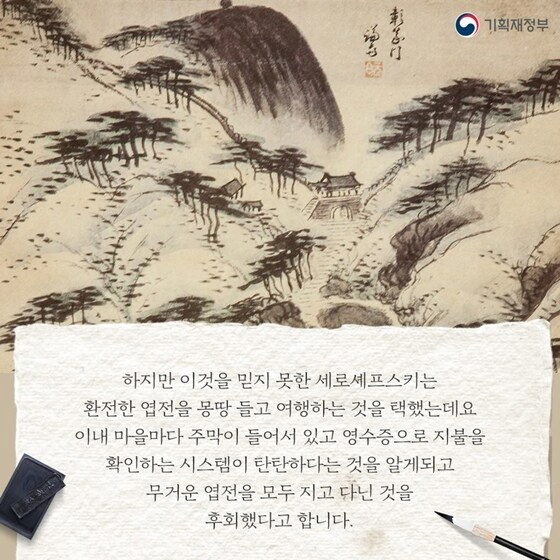 기획재정부
彰義門
謙齋
하지만 이것을 믿지 못한 세로셰프스키는
환전한 엽전을 몽땅 들고 여행하는 것을 택했는데요
이내 마을마다 주막이 들어서 있고 영수증으로 지불을
확인하는 시스템이 탄탄하다는 것을 알게되고
무거운 엽전을 모두 지고 다닌 것을
후회했다고 합니다.